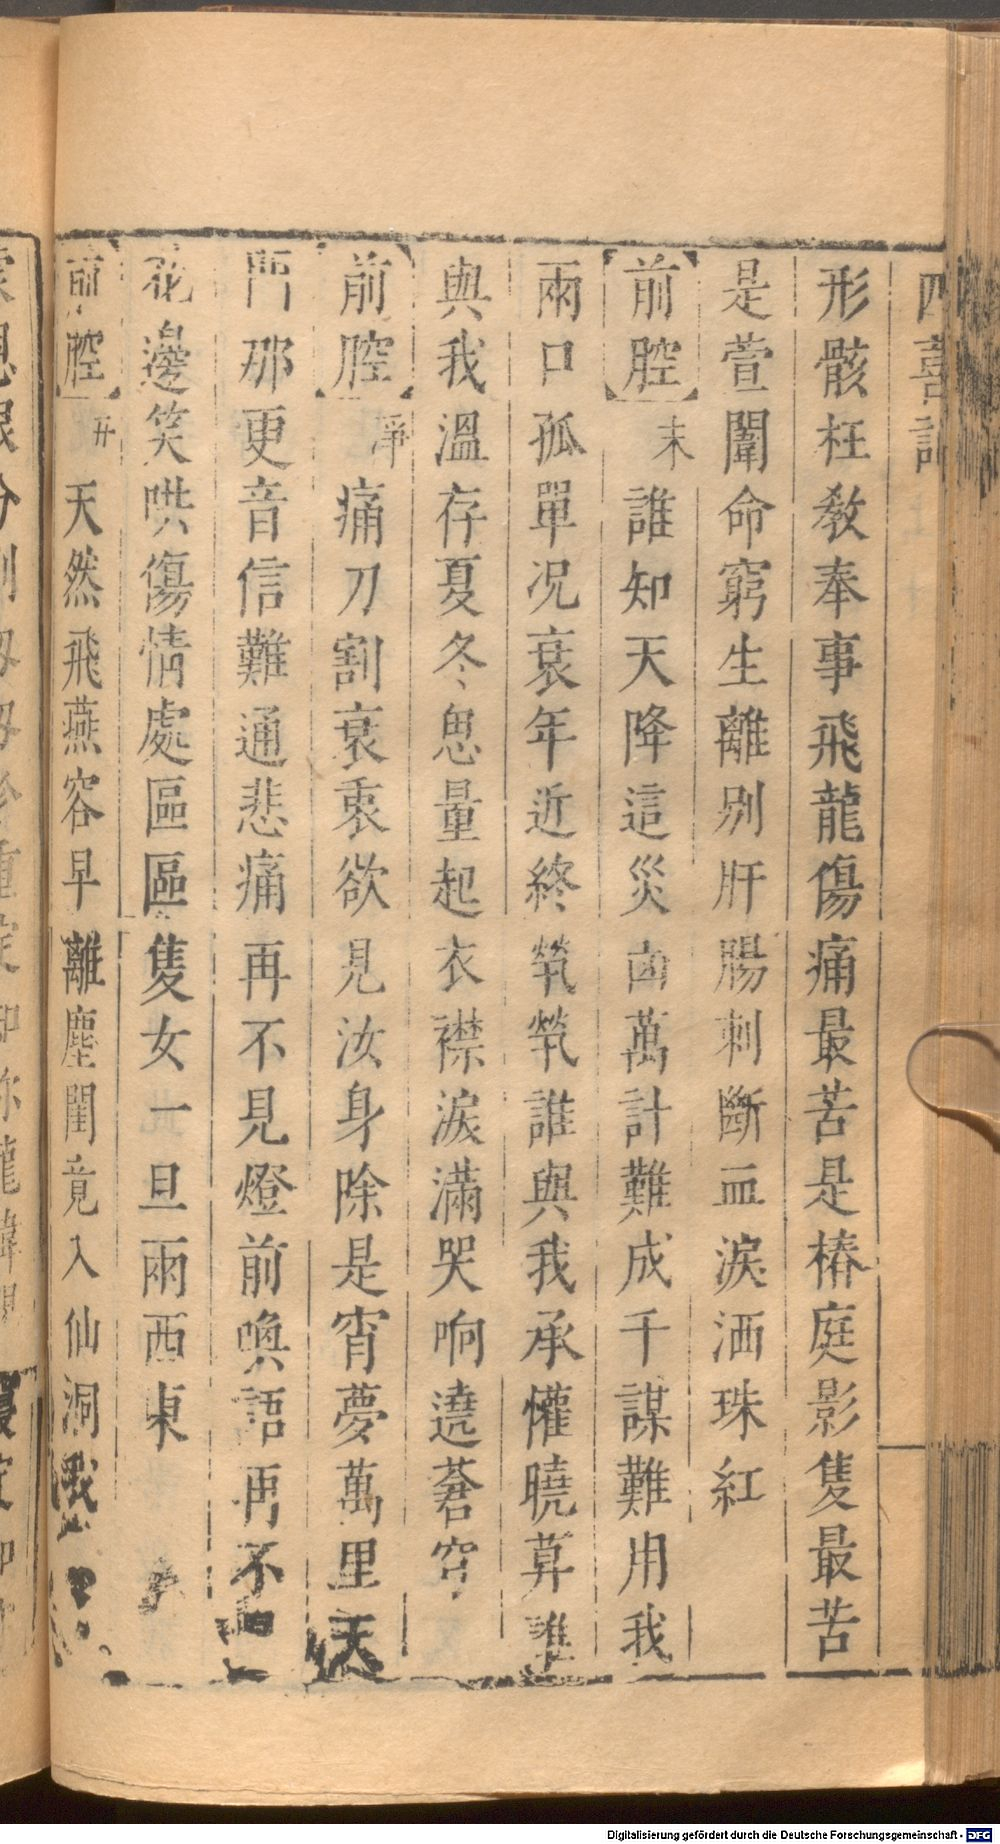 四喜記
形骸枉教奉事飛龍傷痛最苦是椿庭影隻最苦
是萱闈命窮生離別肝腸刺斷血淚洒珠紅
前腔 末 誰知天降這災凶萬計難成千謀難用我
兩口孤單况衰年近終煢煢誰與我承懽曉算誰
與我溫存夏冬思量起衣襟淚滿哭响遶蒼穹
前腔 淨 痛刀割衰衷欲見汝身除是宵夢萬里天
門那更音信難通悲痛再不見燈前喚語再不
花邊笑哄傷情處區區隻女一旦兩西東
前腔 丑 天然飛燕容早離塵閨竟入仙洞我
Digitalisierung gefördert durch die Deutsche Forschungsgemeinschaft - DFG